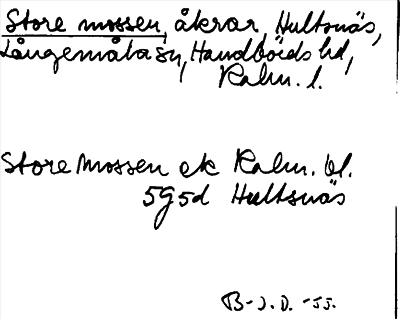 Store mossen, åkrar, Hultsnäs,
Långemåla sn, Handbörds hd,
Kalm. l.
Store Mossen ek Kalm. bl.
5g5d Hultsnäs
B-J.D. -55.